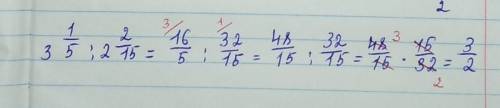 2
3 1/5 : 2 2/15 = 16/5 3/ : 32/15 1/ = 48/15 : 32/15 = 48/15 3 · 15/32 2 = 3/2